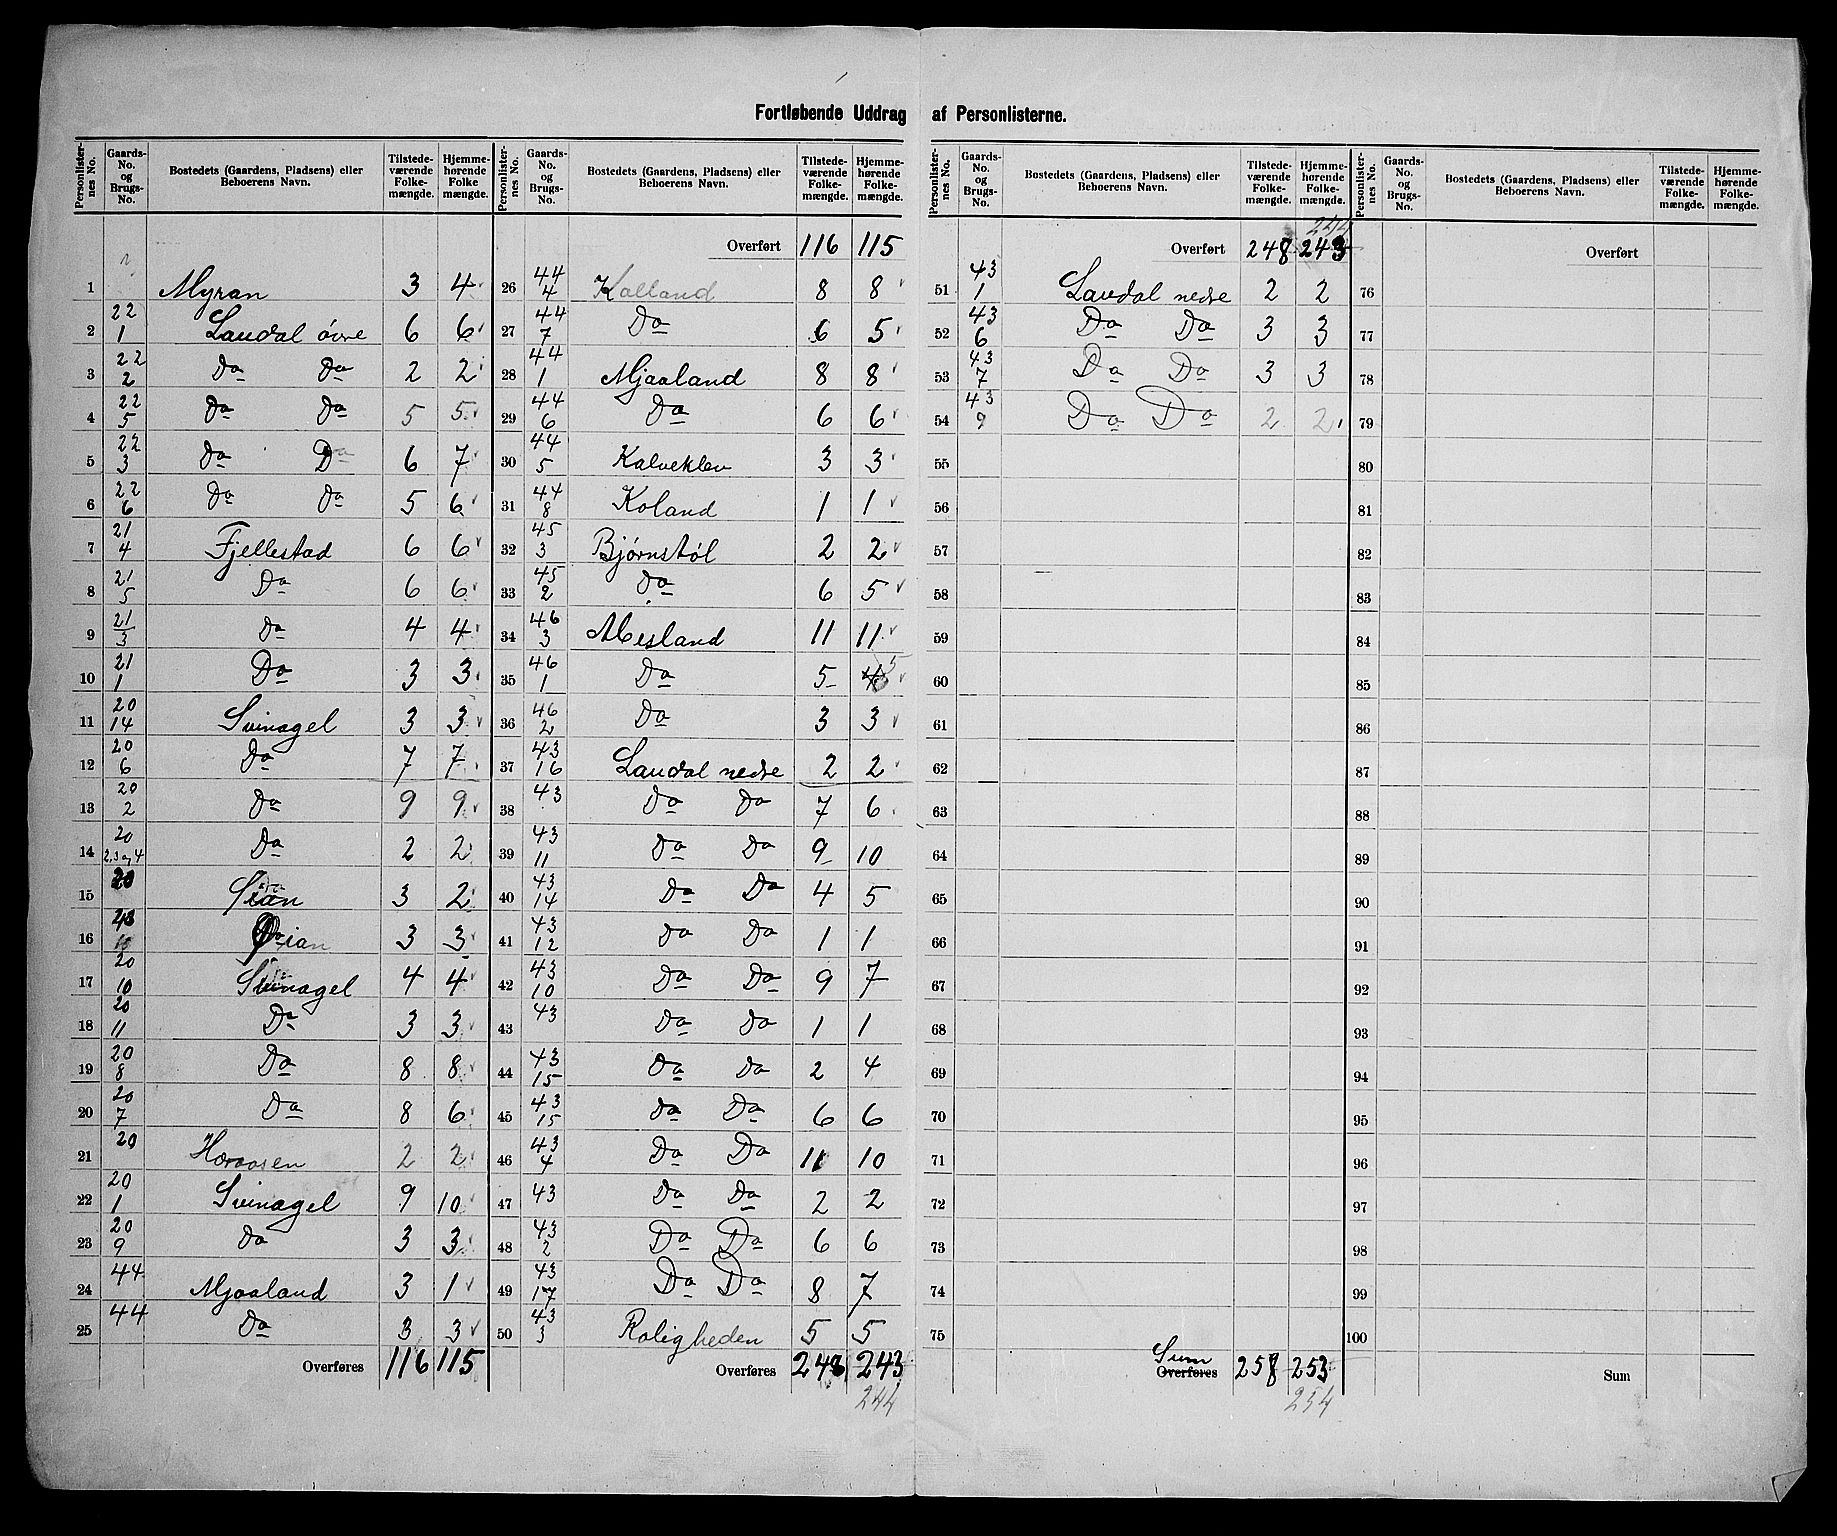 Fortløbende Uddrag af Personlisterne.
Personlisternes No. | Gaards-No. og Brugs-No. | Bostedets (Gaardens, Pladsens) eller Beboerens Navn. | Tilstedeværende Folkemængde. | Hjemmehørende Folkemængde.
1 Myran 3 4
2 22/1 Laudal øvre 6 6
3 22/2 Do Do 2 2
4 22/5 Do Do 5 5
5 22/3 Do Do 6 7
6 22/6 Do Do 5 6
7 21/4 Fjellestad 6 6
8 21/5 Do 6 6
9 21/3 Do 4 4
10 21/1 Do 3 3
11 20/14 Svinagel 3 3
12 20/6 Do 7 7
13 20/2 Do 9 9
14 20/2,3 og 4 Do 2 2
15 20 3 2
16 3 3
17 20/10 Svinagel 4 4
18 20/11 Do 3 3
19 20/8 Do 8 8
20 20/7 Do 8 6
21 20 Heraasen 2 2
22 20/1 Svinagel 9 10
23 20/9 Do 3 3
24 44 Mjaaland 3 1
25 44 Do 3 3
Overføres 116 115
Personlisternes No. | Gaards-No. og Brugs-No. | Bostedets (Gaardens, Pladsens) eller Beboerens Navn. | Tilstedeværende Folkemængde. | Hjemmehørende Folkemængde.
Overført 116 115
26 44/4 Kalland 8 8
27 44/7 Do 6 5
28 44/1 Mjaaland 8 8
29 44/6 Do 6 6
30 44/5 Kalveklev 3 3
31 44/8 Koland 1 1
32 45/3 Bjørnstøl 2 2
33 45/2 Do 6 5
34 46/3 Mesland 11 11
35 46/1 Do 5 4 5
36 46/2 Do 3 3
37 43/16 Laudal nedre 2 2
38 43 Do Do 7 6
39 43/11 Do Do 9 10
40 43/14 Do Do 4 5
41 43/12 Do Do 1 1
42 43/10 Do Do 9 7
43 43 Do Do 1 1
44 43/15 Do Do 2 4
45 43/15 Do Do 6 6
46 43/4 Do Do 11 10
47 43 Do Do 2 2
48 43/2 Do Do 6 6
49 43/17 Do Do 8 7
50 43/3 Roligheden 5 5
Overføres 248 243
244
Personlisternes No. | Gaards-No. og Brugs-No. | Bostedets (Gaardens, Pladsens) eller Beboerens Navn. | Tilstedeværende Folkemængde. | Hjemmehørende Folkemængde.
244
Overført 248 243
51 43/1 Laudal nedre 2 2
52 43/6 Do Do 3 3
53 43/7 Do Do 3 3
54 43/9 Do Do 2 2
55
56
57
58
59
60
61
62
63
64
65
66
67
68
69
70
71
72
73
74
75
Sum
Overføres 258 253
254
Personlisternes No. | Gaards-No. og Brugs-No. | Bostedets (Gaardens, Pladsens) eller Beboerens Navn. | Tilstedeværende Folkemængde. | Hjemmehørende Folkemængde.
Overført
76
77
78
79
80
81
82
83
84
85
86
87
88
89
90
91
92
93
94
95
96
97
98
99
100
Sum